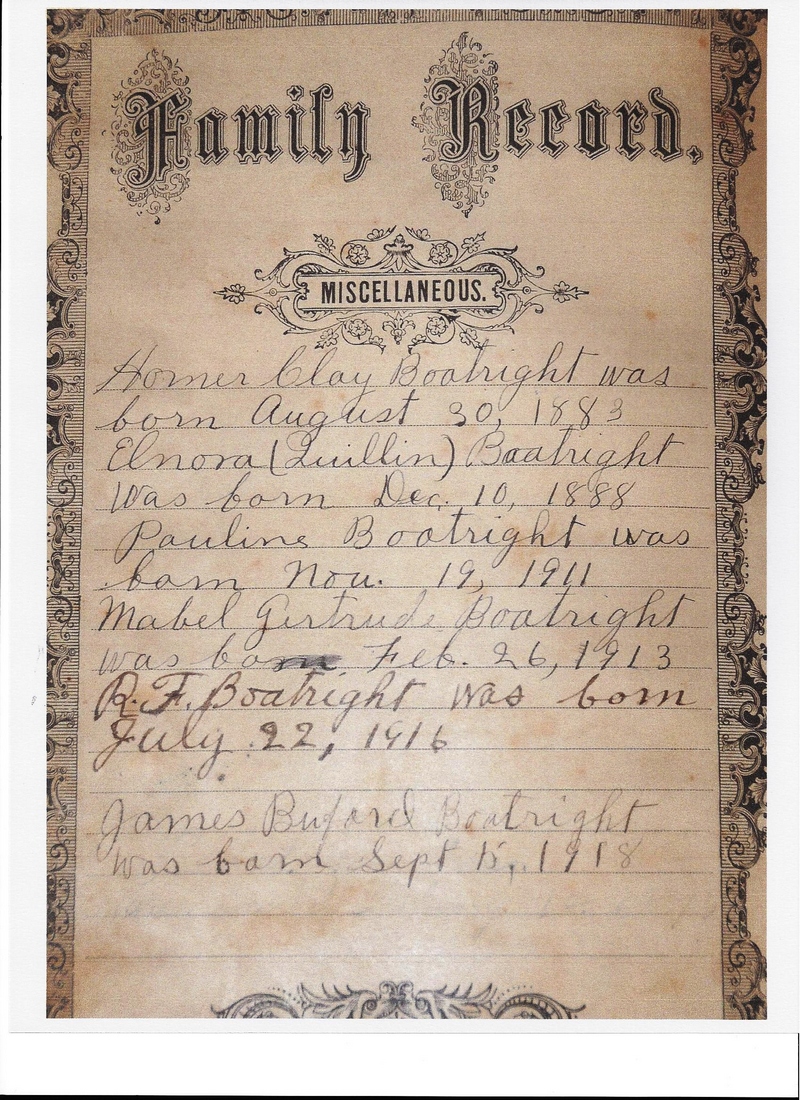 Family Record.
MISCELLANEOUS.
Homer Clay Boatright was
born August 30, 1883
Elnora (Quillin) Boatright
was born Dec. 10, 1888
Pauline Boatright was
born Nov. 19, 1911
Mabel Gertrude Boatright
was born Feb. 26, 1913
R.F. Boatright was born
July 22, 1916
James Buford Boatright
was born Sept 15, 1918